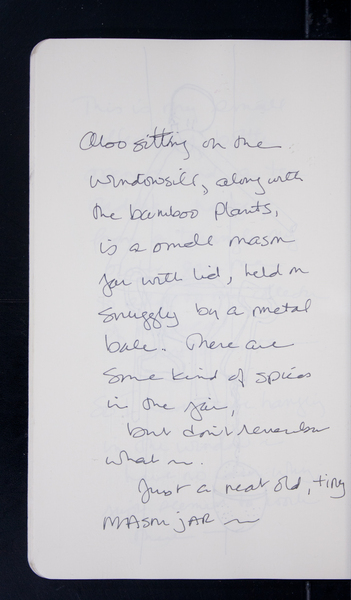 Also sitting on the
windowsill, along with
the bamboo plants,
is a small mason
jar with lid, held on
snuggly by a metal
bale.. There are
some kind of spices
in the jar,
but don't remember
what ~.
Just a neat old, tiny
MASON JAR ~